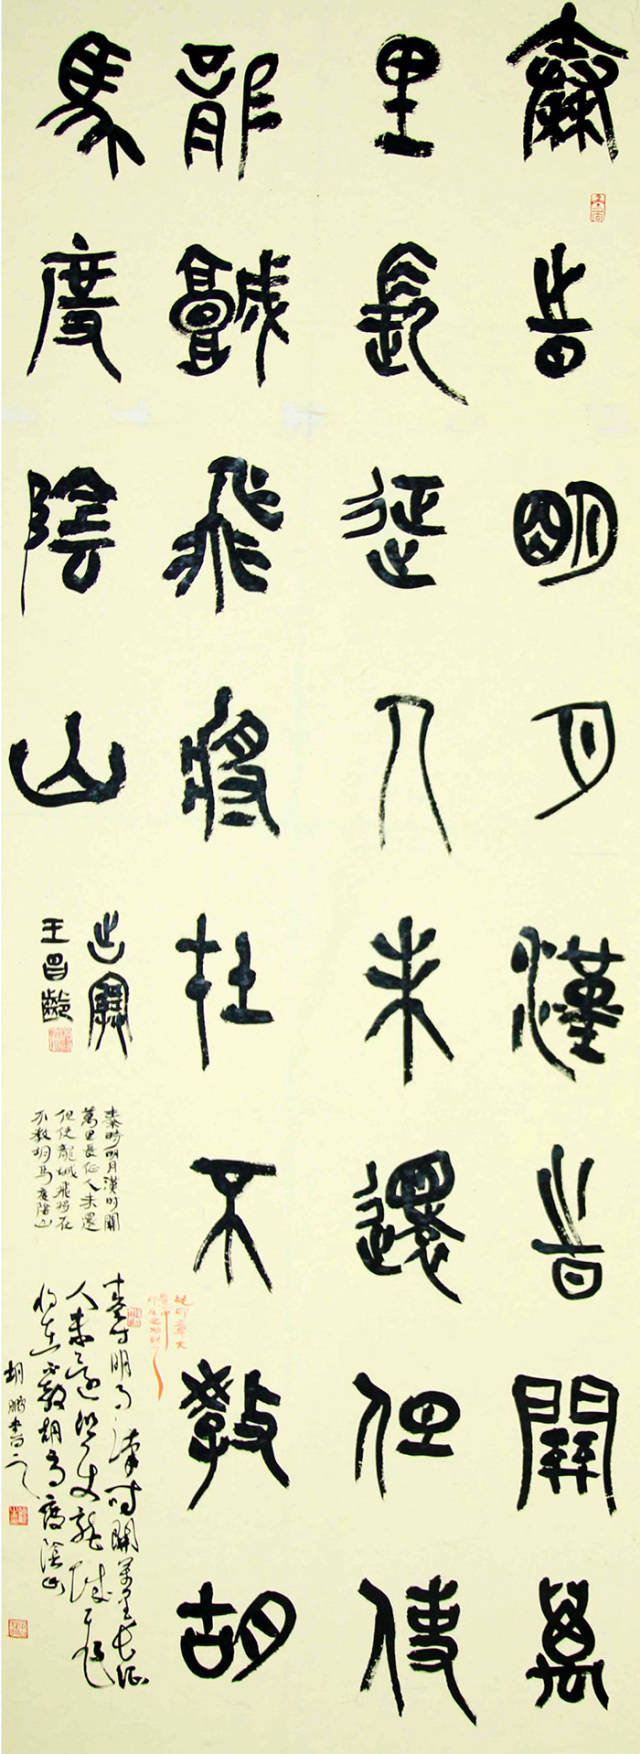 秦時明月漢時關萬
里長征人未還但使
龍城飛將在不教胡
馬度陰山
出塞
王昌齡
秦時明月漢時關
萬里長征人未還
但使龍城飛將在
不教胡馬度陰山
秦時明月漢時關萬里長征
人未還但使龍城飛
將在不教胡馬度陰山
胡鵬書